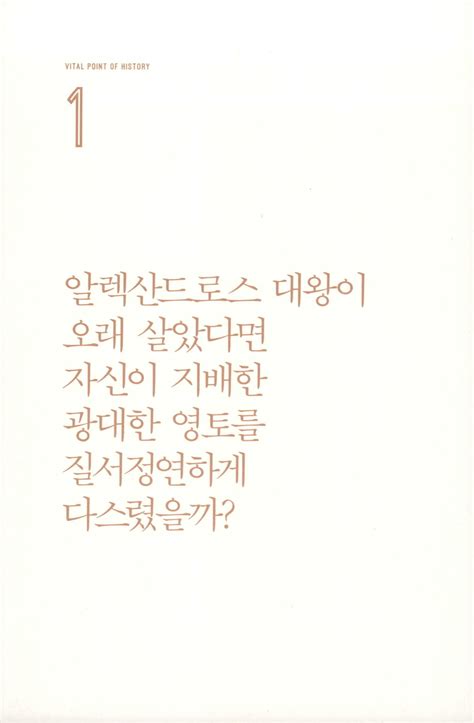 VITAL POINT OF HISTORY
1
알렉산드로스 대왕이
오래 살았다면
자신이 지배한
광대한 영토를
질서정연하게
다스렸을까?